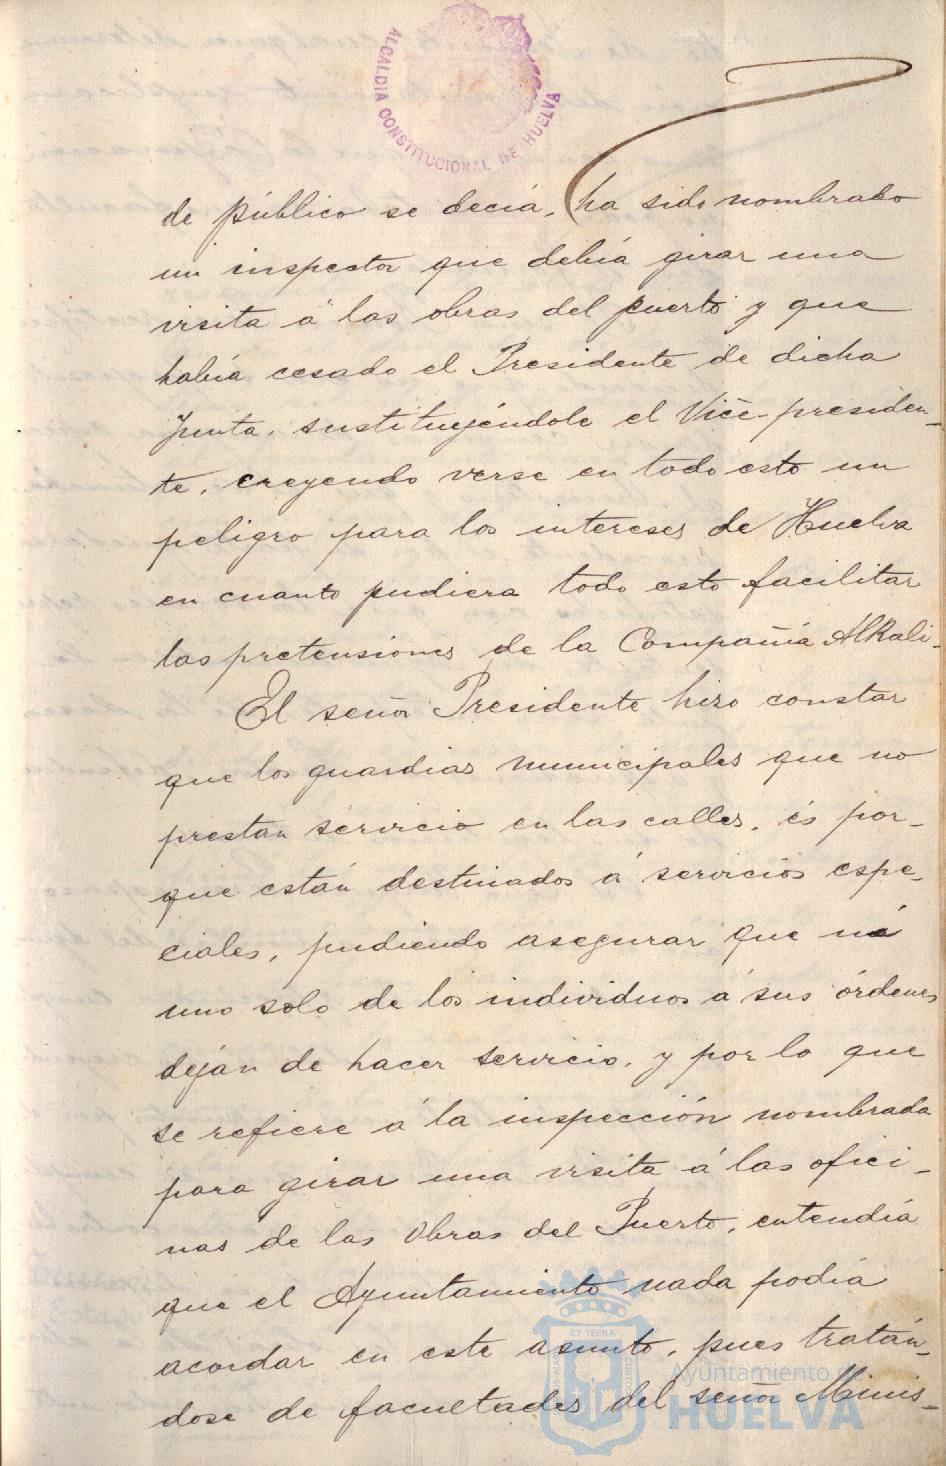 ALCALDIA CONSTITUCIONAL DE HUELVA
de público se decía, ha sido nombrado
un inspector que debía girar una
visita á las obras del puerto y que
había cesado el Presidente de dicha
Junta, sustituyéndole el Vice-presiden-
te, creyendo verse en todo esto un
peligro para los intereses de Huelva
en cuanto pudiera todo esto facilitar
las pretensiones de la Compañía Alkali-
El señor Presidente hizo constar
que los guardias municipales que no
prestan servicio en las calles, és por-
que están destinados á servicios espe-
ciales, pudiendo asegurar que ni
uno solo de los individuos á sus órdenes
dejan de hacer servicio, y por lo que
se refiere á la inspección nombrada
para girar una visita á las ofici-
nas de las Obras del Puerto, entendía
que el Ayuntamiento nada podía
acordar en este asunto, pues tratán-
dose de facultades del señor Minis-
ET TERRÆ
Ayuntamiento de
HUELVA